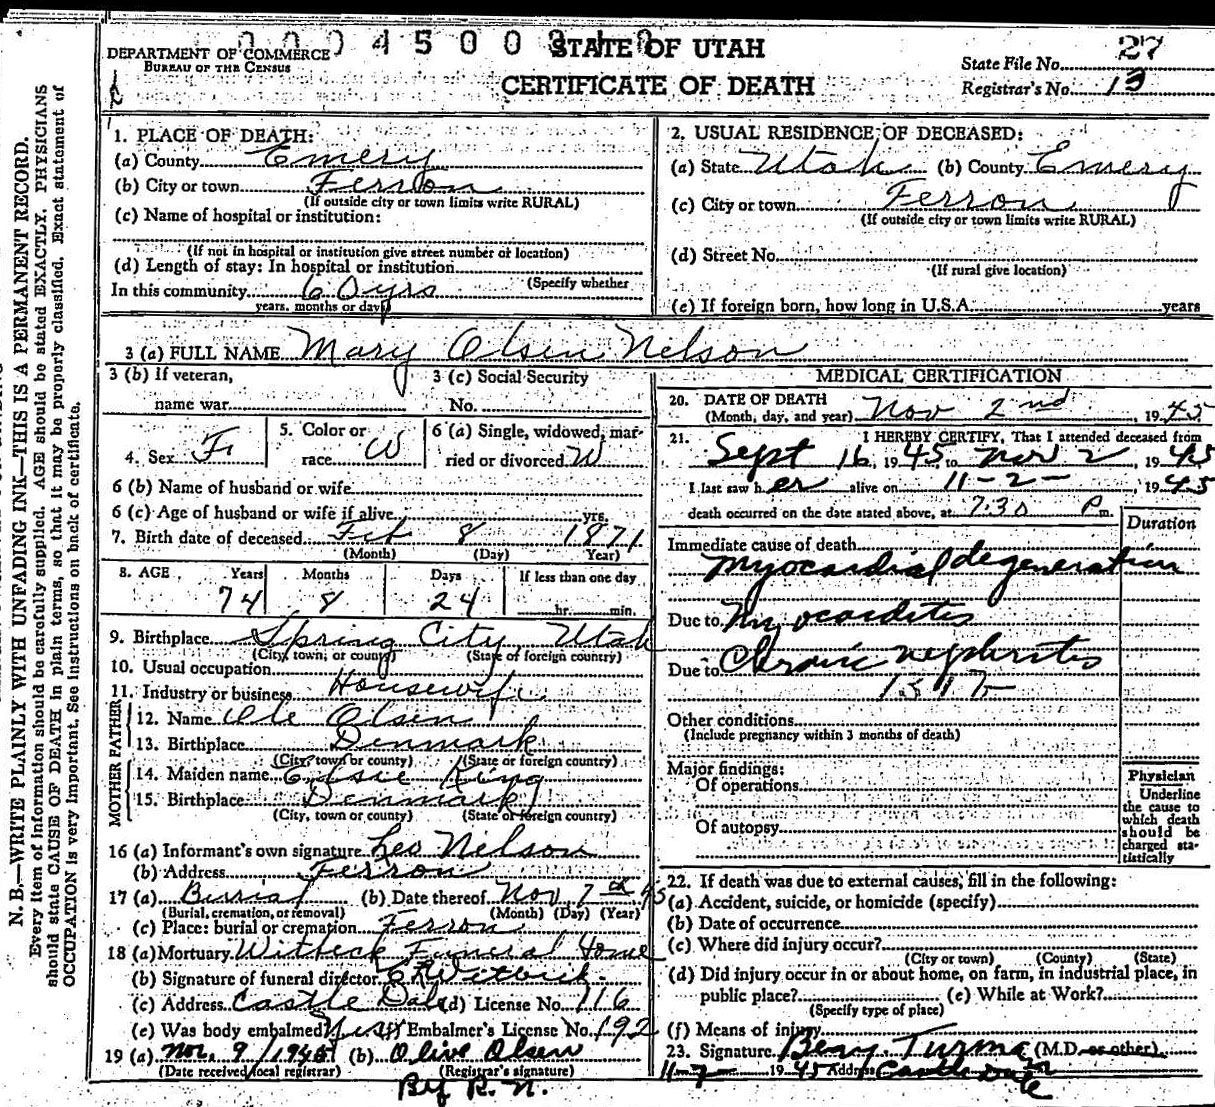 DEPARTMENT OF COMMERCE
BUREAU OF THE CENSUS
STATE OF UTAH
CERTIFICATE OF DEATH
State File No. 27
Registrar's No. 13
N. B.—WRITE PLAINLY WITH UNFADING INK—THIS IS A PERMANENT RECORD.
Every item of information should be carefully supplied. AGE should be stated EXACTLY. PHYSICIANS
should state CAUSE OF DEATH in plain terms, so that it may be properly classified. Exact statement of
OCCUPATION is very important. See instructions on back of certificate.
1. PLACE OF DEATH:
(a) County Emery
(b) City or town Ferron
(If outside city or town limits write RURAL)
(c) Name of hospital or institution:
(If not in hospital or institution give street number or location)
(d) Length of stay: In hospital or institution
(Specify whether
In this community 60 yrs
years, months or days)
2. USUAL RESIDENCE OF DECEASED:
(a) State Utah (b) County Emery
(c) City or town Ferron
(If outside city or town limits write RURAL)
(d) Street No.
(If rural give location)
(e) If foreign born, how long in U.S.A. years
3 (a) FULL NAME Mary Olsen Nelson
3 (b) If veteran,
name war
3 (c) Social Security
No.
4. Sex F
5. Color or
race W
6 (a) Single, widowed, mar-
ried or divorced W
6 (b) Name of husband or wife
6 (c) Age of husband or wife if alive yrs.
7. Birth date of deceased Feb 8 1871
(Month) (Day) Year)
8. AGE Years Months Days If less than one day
74 8 24 hr. min.
9. Birthplace Spring City, Utah
(City, town, or county) (State of foreign country)
10. Usual occupation
11. Industry or business Housewife
FATHER
12. Name Ole Olsen
13. Birthplace Denmark
(City, town or county) (State or foreign country)
MOTHER
14. Maiden name Elsie King
15. Birthplace Denmark
(City, town or county) (State or foreign country)
16 (a) Informant's own signature Leo Nelson
(b) Address Ferron
17 (a) Burrial (b) Date thereof Nov 7th 45
(Burial, cremation, or removal) (Month) (Day) (Year)
(c) Place: burial or cremation Ferron
18 (a) Mortuary Witbeck Funeral Home
(b) Signature of funeral director Witbeck
(c) Address Castle Dale (d) License No. 116
(e) Was body embalmed Yes Embalmer's License No. 192
19 (a) Nov. 9/1945 (b) Olive Olsen
(Date received local registrar) (Registrar's signature)
By R. N.
MEDICAL CERTIFICATION
20. DATE OF DEATH
(Month, day, and year) Nov 2nd, 1945
21. I HEREBY CERTIFY, That I attended deceased from
Sept 16, 1945 to Nov 2, 1945
I last saw her alive on 11-2-, 1945
death occurred on the date stated above, at 7:30 Pm.
Duration
Immediate cause of death
Myocardial degeneration
Due to Myocarditis
Due to Chronic nephritis
Other conditions
(Include pregnancy within 3 months of death)
Major findings:
Of operations
Of autopsy
Physician
Underline
the cause to
which death
should be
charged sta-
tistically
22. If death was due to external causes, fill in the following:
(a) Accident, suicide, or homicide (specify)
(b) Date of occurrence
(c) Where did injury occur?
(City or town) (County) (State)
(d) Did injury occur in or about home, on farm, in industrial place, in
public place? (e) While at Work?
(Specify type of place)
(f) Means of injury
23. Signature (M.D. or other)
11-7- 1945 Address Castle Dale